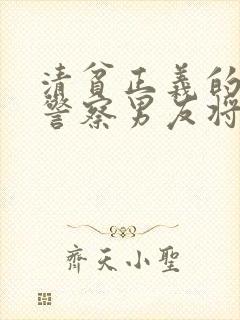 清貧正義的
警察男友將
齊天小聖